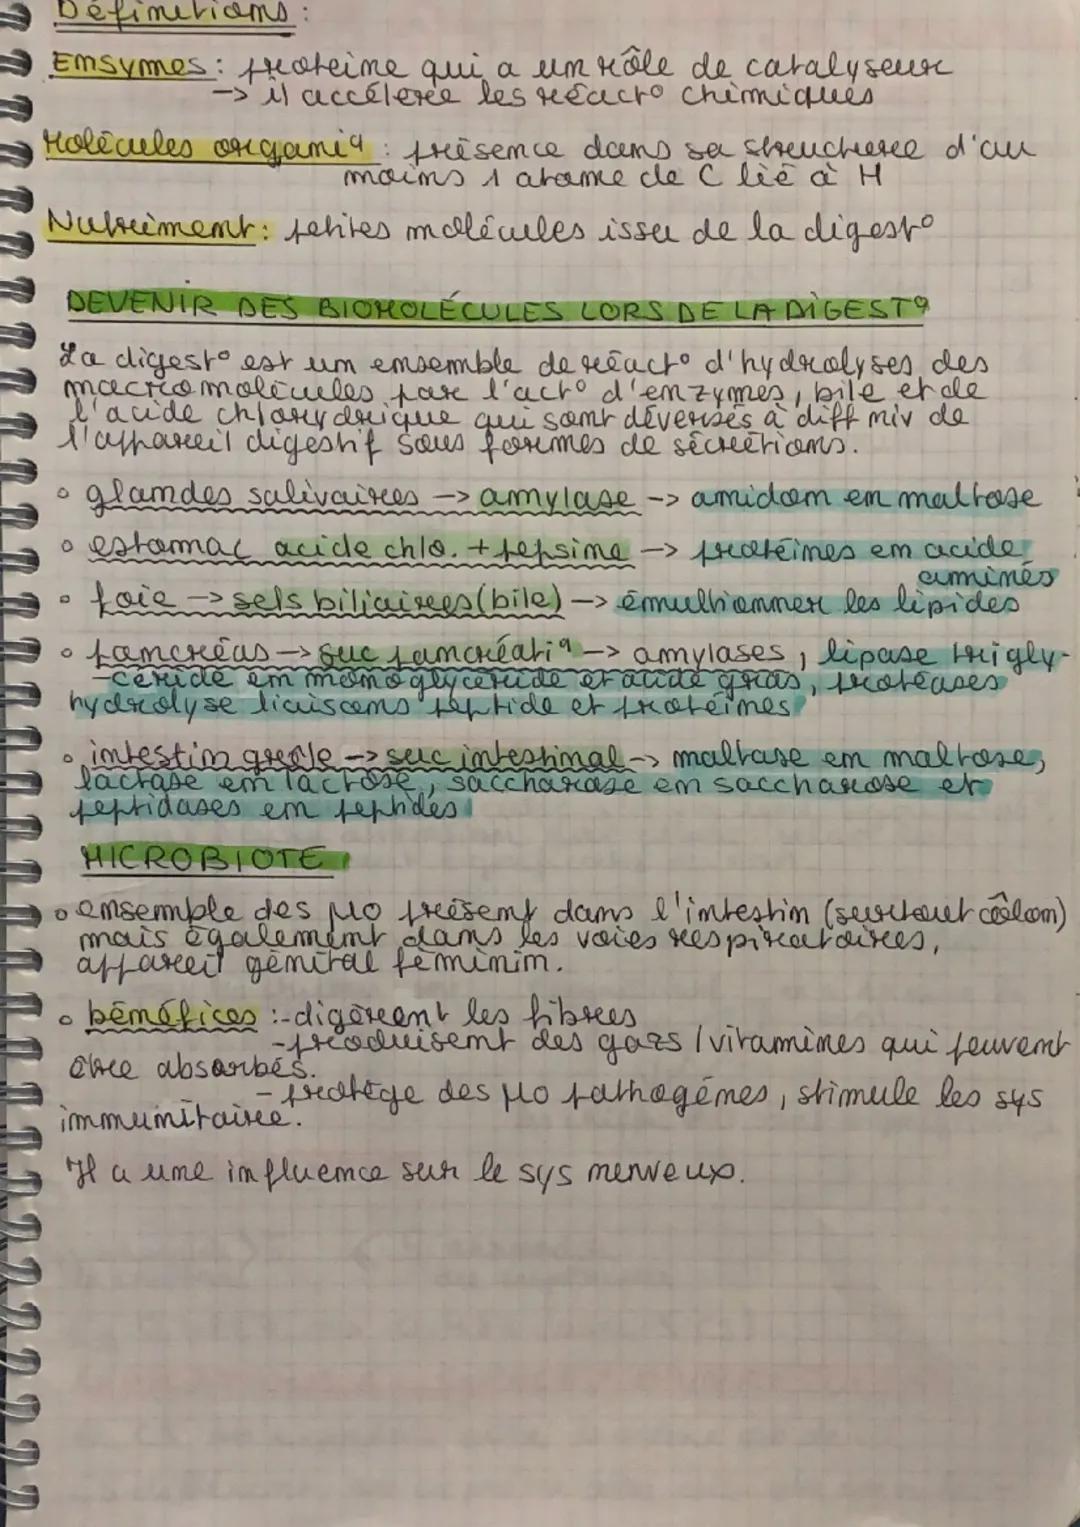 Définitions :
Emsymes : protéine qui a un rôle de catalyseur
-> il accélère les réact° chimiques
Molécules organiq : présence dans sa structure d'au
moins 1 atome de C lié à H
Nutriment : petites molécules issu de la digest°
DEVENIR DES BIOMOLÉCULES LORS DE LA DIGEST°
La digest° est un ensemble de réact° d'hydrolyses des
macromolécules par l'act° d'enzymes, bile et de
l'acide chlorydrique qui sont déversés à diff niv de
l'appareil digestif sous formes de sécrétions.
° glandes salivaires -> amylase -> amidon en maltose
° estomac acide chlo. + pepsine -> protéines en acide
aminés
° foie -> sels biliaires (bile) -> émultionner les lipides
° pancréas -> suc pancréatiq -> amylases, lipase trigly-
-céride en monoglycéride et acide gras, protéases
hydrolyse liaisons peptide et protéines
° intestin grêle -> suc intestinal -> maltase en maltose,
lactase en lactose, saccharase en saccharose et
peptidases en peptides
MICROBIOTE
° ensemble des µo présent dans l'intestin (surtout côlon)
mais également dans les voies respiratoires,
appareil génital féminin.
° bénéfices : - digèrent les fibres
- produisent des gazs / vitamines qui peuvent
être absorbés.
- protège des µo pathogènes, stimule les sys
immunitaire.
Il a une influence sur le sys nerveux.